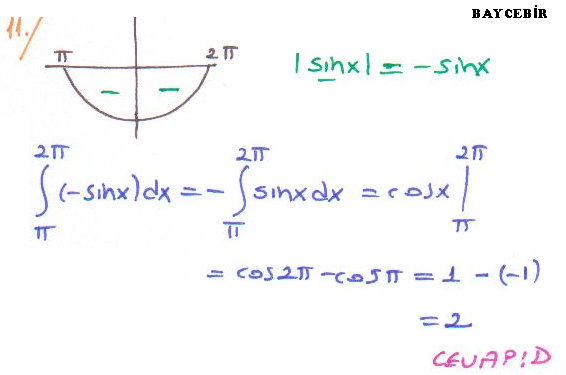 BAYCEBİR
11./
π 2π
|sinx| = -sinx
- -
∫_π^{2π} (-sinx)dx = -∫_π^{2π} sinx dx = cosx |_π^{2π}
= cos2π - cosπ = 1 - (-1)
= 2
CEVAP:D